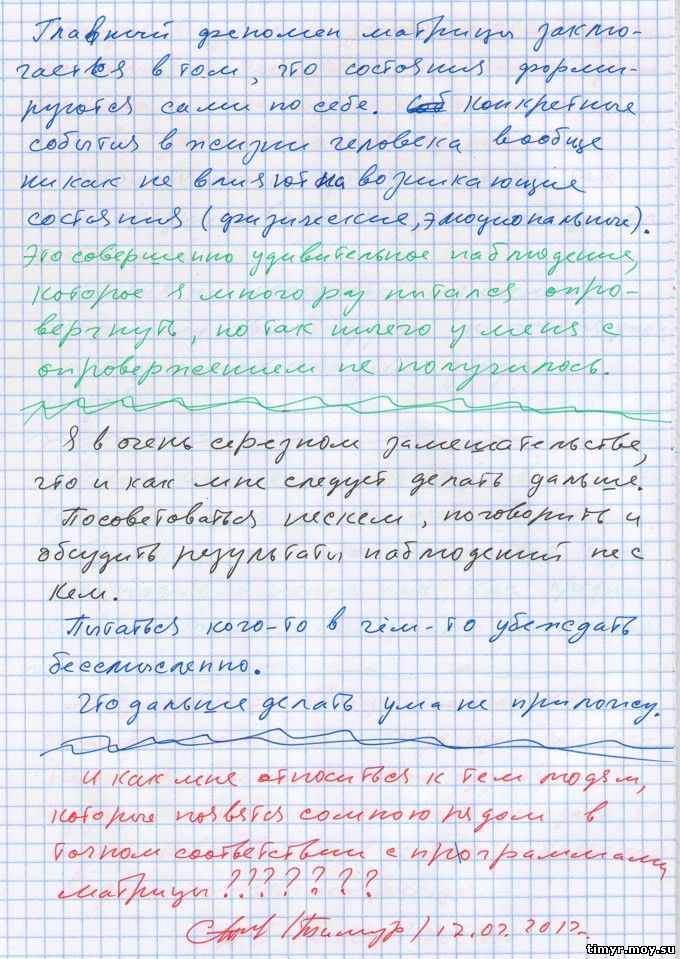 Главный феномен матрицы заклю-
чается в том, что состояния форми-
руются сами по себе. Соб конкретные
события в жизни человека вообще
никак не влияют на возникающие
состояния (физические, эмоциональные).
Это совершенно удивительное наблюдение,
которое я много раз питался опро-
вергнуть, но так ничего у меня с
опровержением не получилось.
Я в очень серезном замешательстве,
что и как мне следует делать дальше.
Посоветоваться нескем, поговорить и
обсудить результаты наблюдений не с
кем.
Пытаться кого-то в чём-то убеждать
бессмысленно.
Что дальше делать ума не приложу.
И как мне относиться к тем людям,
которые появятся сомною рядом в
точном соответствии с программами
матрицы???????
(Тимур) 12.02.2012г.
timyr.moy.su